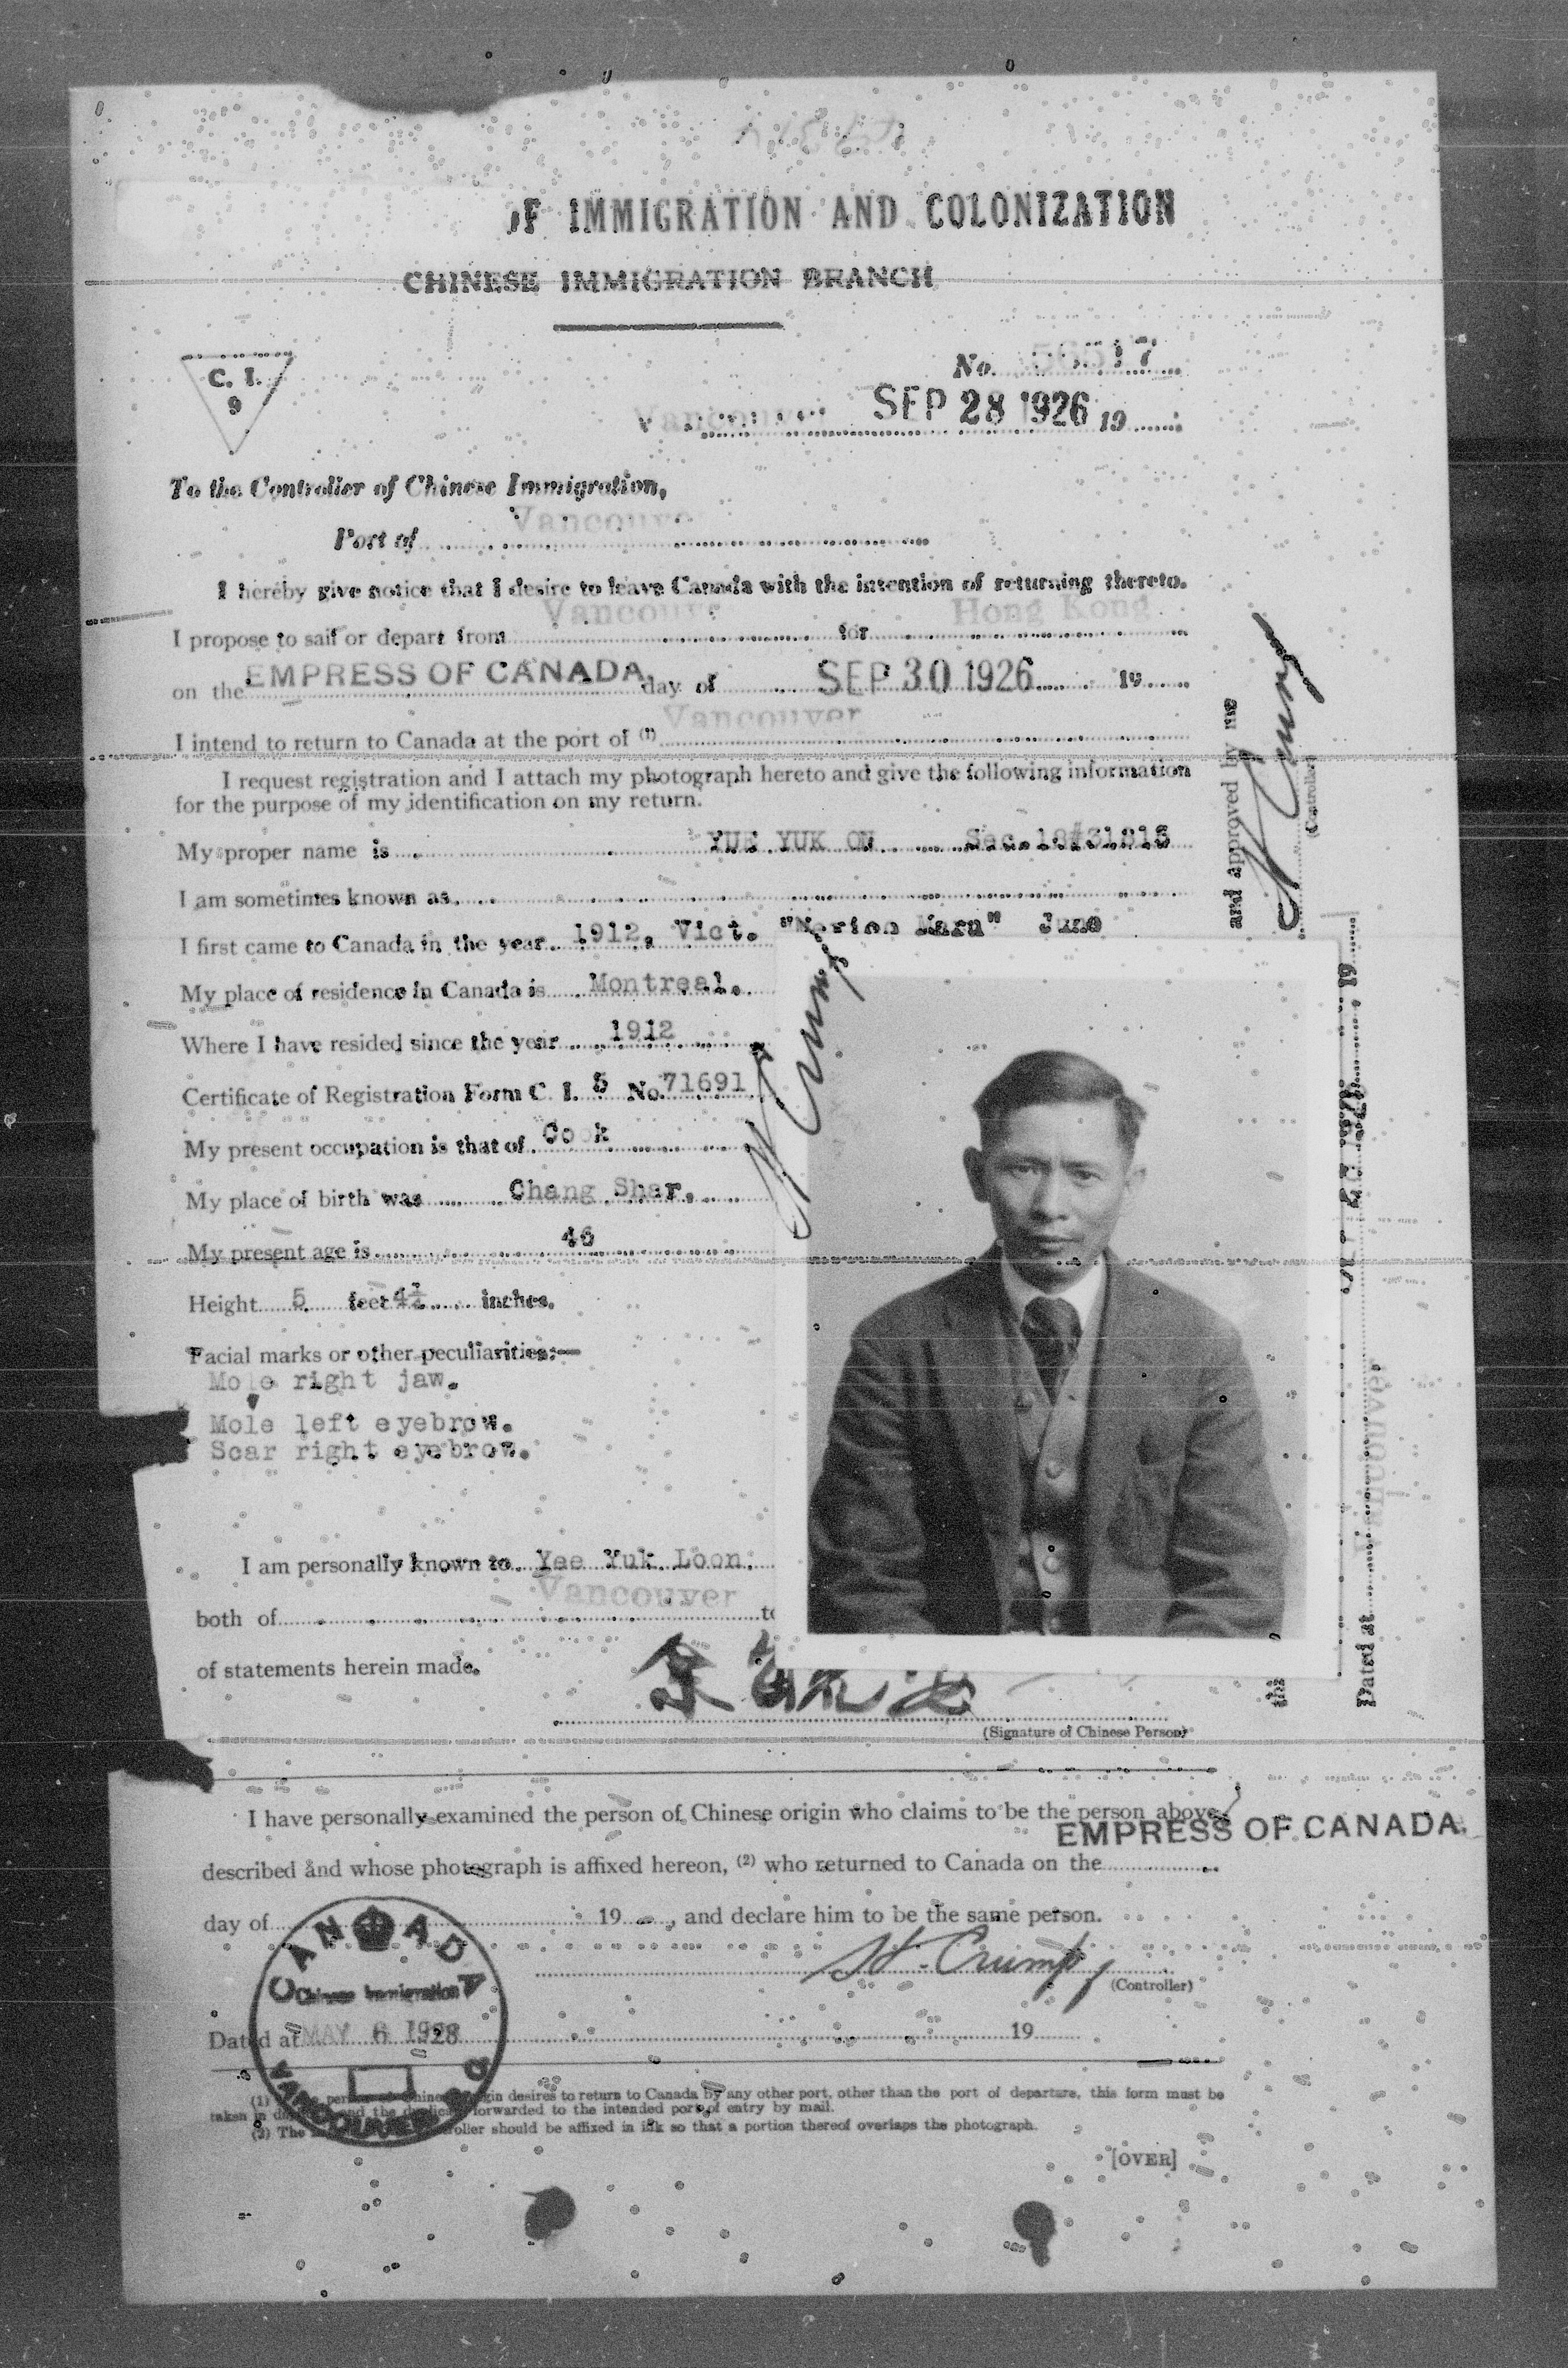 OF IMMIGRATION AND COLONIZATION
CHINESE IMMIGRATION BRANCH
C. I.
9
No. 56517
Vancouver SEP 28 1926 19
To the Controller of Chinese Immigration,
Port of Vancouver
I hereby give notice that I desire to leave Canada with the intention of returning thereto.
I propose to sail or depart from Vancouver for Hong Kong
on the EMPRESS OF CANADA. day of SEP 30 1926 19
I intend to return to Canada at the port of (1) Vancouver
I request registration and I attach my photograph hereto and give the following information
for the purpose of my identification on my return.
My proper name is YUE YUK ON Sec.18#31815
I am sometimes known as
I first came to Canada in the year 1912, Vict. Maru" June
My place of residence in Canada is Montreal.
Where I have resided since the year 1912
Certificate of Registration Form C. I. 5 No. 71691
My present occupation is that of Cook
My place of birth was Chang Shar.
My present age is 46
Height 5 feet 4½ inches.
Facial marks or other peculiarities:—
Mole right jaw.
Mole left eyebrow.
Scar right eyebrow.
I am personally known to Yee Yuk Loon.
both of Vancouver to
of statements herein made.
余
(Signature of Chinese Person)
and approved by me
(Controller)
Dated at Vancouver 19
I have personally examined the person of Chinese origin who claims to be the person above
EMPRESS OF CANADA.
described and whose photograph is affixed hereon, (2) who returned to Canada on the
day of 19 , and declare him to be the same person.
H. Crump
(Controller)
CANADA
Chinese Immigration
VANCOUVER B C
Dated at MAY 6 1928 19
(1) desires to return to Canada by any other port, other than the port of departure, this form must be
taken in and the forwarded to the intended port of entry by mail.
(2) The should be affixed in ink so that a portion thereof overlaps the photograph.
[OVER]